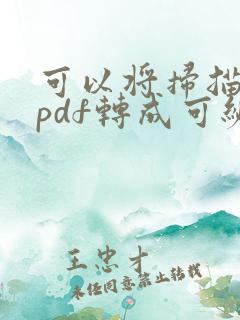 可以將掃描
pdf轉成可編
王忠才
未經同意禁止轉載